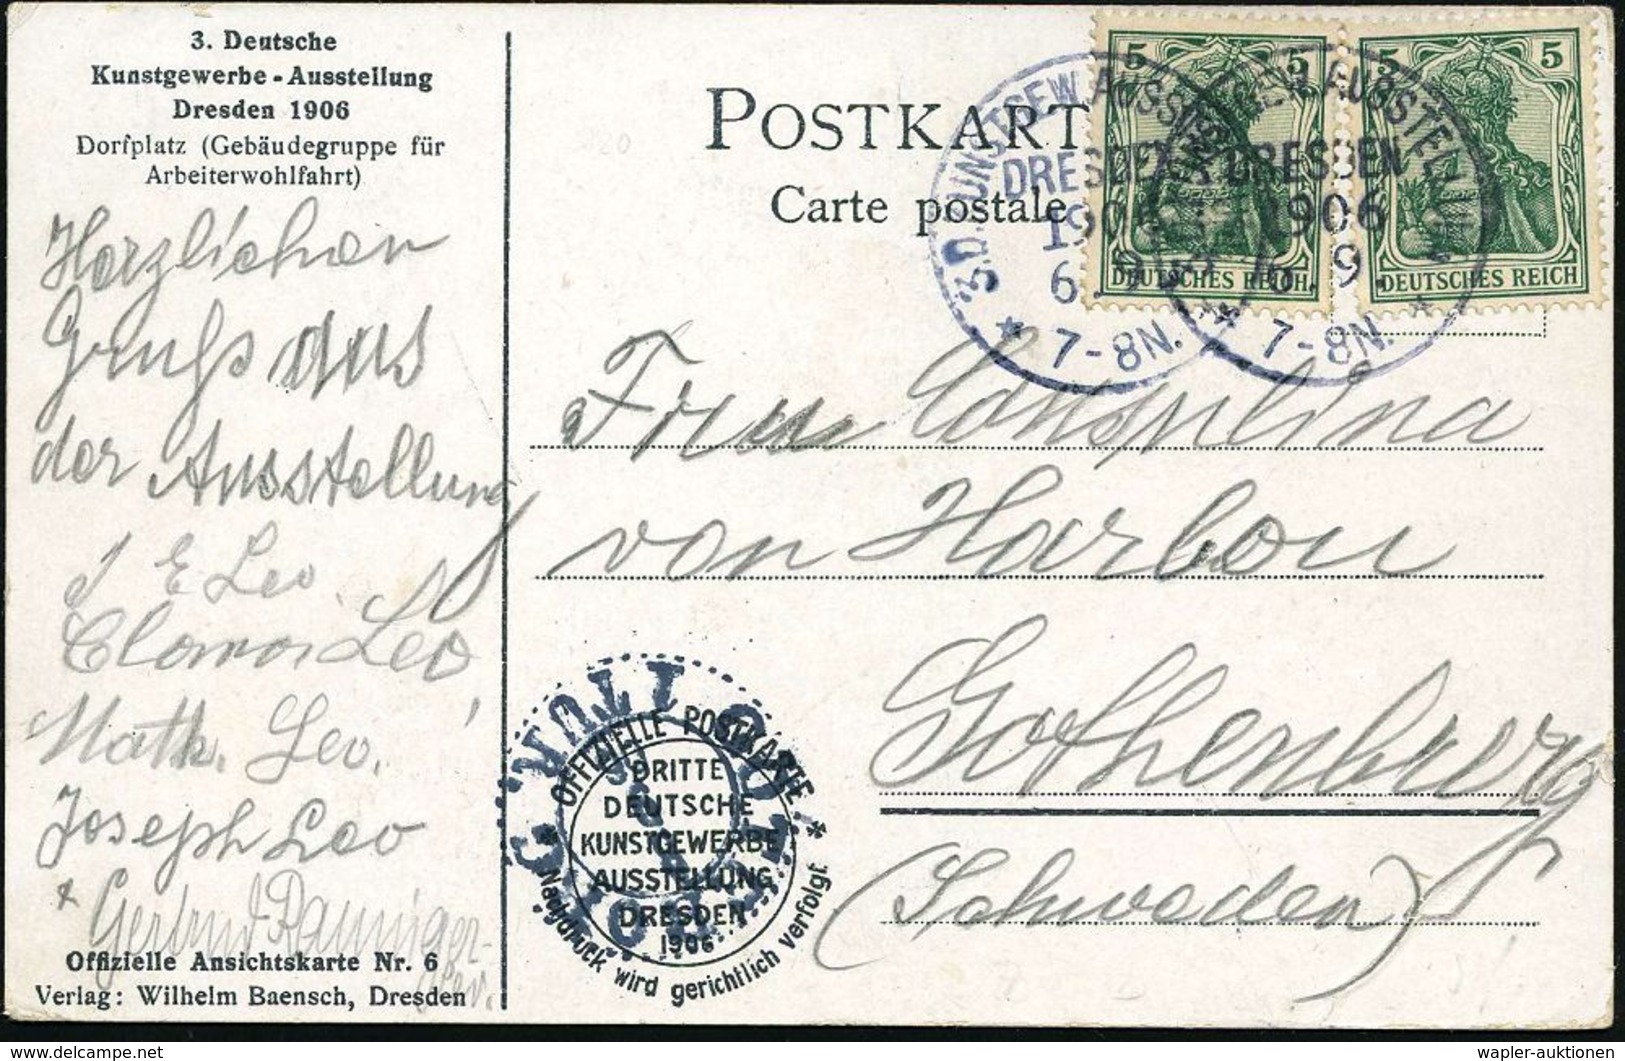 3. Deutsche
Kunstgewerbe-Ausstellung
Dresden 1906
Dorfplatz (Gebäudegruppe für
Arbeiterwohlfahrt)
Herzlichen
Gruß aus
der Ausstellung
E Leo
Leo
Math. Leo.
Joseph Leo
Gertrud
Offizielle Ansichtskarte Nr. 6
Verlag: Wilhelm Baensch, Dresden
POSTKART
Carte postale
5 5
DEUTSCHES REICH
5 5
DEUTSCHES REICH
3. D. KUNSTGEW. AUSSTELLUNG
DRESDEN
1906
6. 9.
* 7-8N. *
AUSSTELLUNG
DRESDEN
1906
6. 9.
* 7-8N. *
Frau
von Harbou
Gothenburg
(Schweden)
OFFIZIELLE POSTKARTE
DRITTE
DEUTSCHE
KUNSTGEWERBE
AUSSTELLUNG
DRESDEN
1906
Nachdruck wird gerichtlich verfolgt
wapler-auktionen